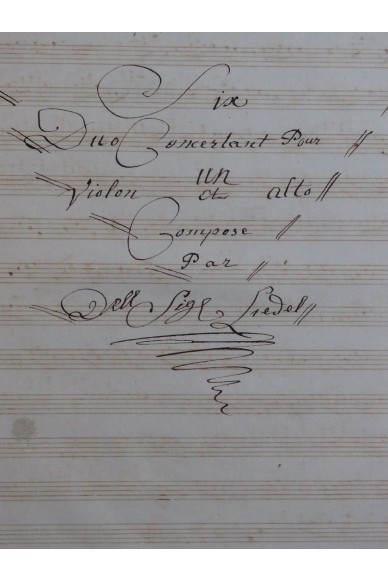 Six
Duo Concertant Pour //
Violon un et alto //
Compose //
Par //
Dell Sigr Liedel //